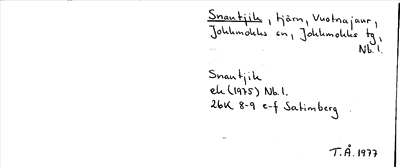 Snautjik, tjärn, Vuotnajaur,
Jokkmokks sn, Jokkmokks tg,
Nb.l.
Snautjik
ek (1975) Nb.l.
26K 8-9 e-f Satimberg
T.Å. 1977